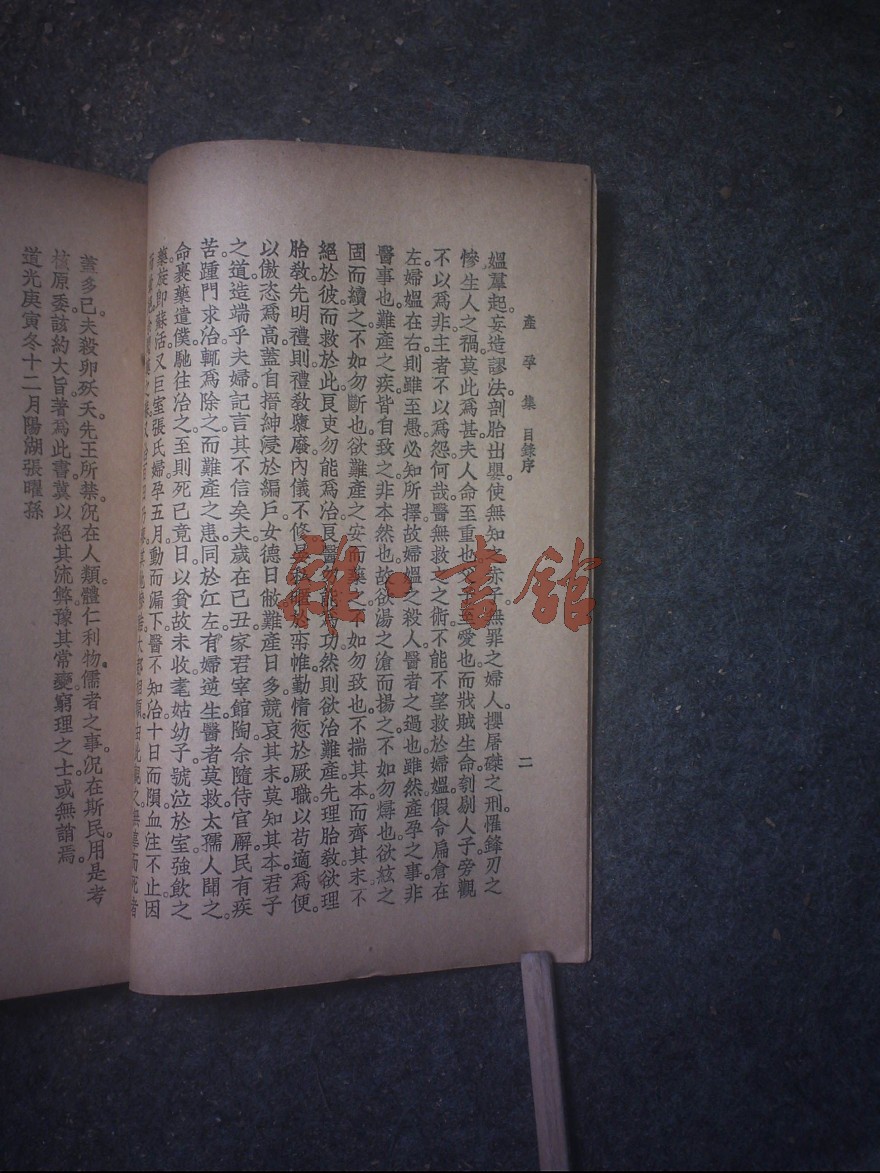 產孕集 目錄序 二
媼羣起。妄造謬法。剖胎出嬰。使無知之赤子。無罪之婦人。攖屠磔之刑。罹鋒刃之
慘。生人之禍。莫此爲甚。夫人命至重也。父子至愛也。而戕賊生命。刳剔人子。旁觀
不以爲非。主者不以爲怨。何哉。醫無救之之術。不能不望救於婦媼。假令扁倉在
左。婦媼在右。則雖至愚。必知所擇。故婦媼之殺人。醫者之過也。雖然。產孕之事。非
醫事也。難產之疾。皆自致之。非本然也。故欲湯之滄而揚之。不如勿燖也。欲絃之
固而續之。不如勿斷也。欲難產之安而藥之。不如勿致也。不揣其本而齊其末。不
絕於彼而救於此。良吏勿能爲治。良醫勿能爲功。然則欲治難產。先理胎教。欲理
胎教。先明禮則。禮教隳廢。內儀不修。晏私 於帘帷。勤惰愆於厥職。以苟適爲便。
以傲恣爲高。蓋自搢紳。浸於編戶。女德日敝。難產日多。競哀其末。莫知其本。君子
之道。造端乎夫婦。記言其不信矣夫。歲在己丑。家君宰館陶。余隨侍官廨。民有疾
苦。踵門求治。輒爲除之。而難產之患。同於江左。有婦逆生。醫者莫救。太孺人聞之。
命裹藥遣僕馳往治之。至則死已竟日。以貧故未收。耄姑幼子。號泣於室。強飲之
藥。旋即蘇活。又巨室張氏婦。孕五月。動而漏下。醫不知治。十日而隕。血注不止。因
之 無 而死者
蓋多已。夫殺卵殀夭。先王所禁。況在人類。體仁利物。儒者之事。況在斯民。用是考
核原委。該約大旨。著爲此書。冀以絕其流弊。豫其常變。窮理之士。或無誚焉。
道光庚寅冬十二月陽湖張曜孫
雜·書館